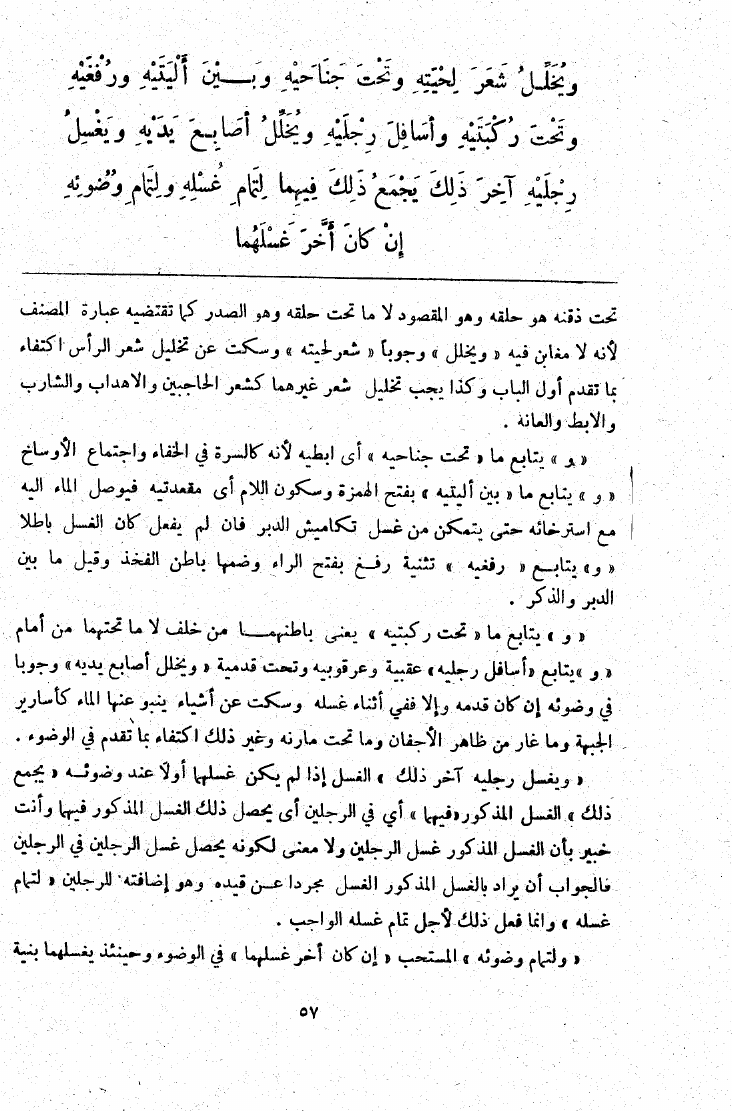 وَيُخَلِّلُ شَعَرَ لِحْيَتِهِ وَتَحْتَ جَنَاحَيْهِ وَبَيْنَ أَلْيَتَيْهِ ورُفْغَيْهِ
وَتَحْتَ رُكْبَتَيْهِ وأسَافِلَ رِجْلَيْهِ ويُخَلِّلُ أصَابِعَ يَدَيْهِ ويَغْسِلُ
رِجْلَيْهِ آخِرَ ذَلِكَ يَجْمَعُ ذَلِكَ فِيهِما لِتَمامِ غُسْلِهِ ولِتَمامِ وضُوئِهِ
إنْ كَانَ أَخَّرَ غَسْلَهُما
تحت ذقنه هو حلقه وهو المقصود لا ما تحت حلقه وهو الصدر كما تقتضيه عبارة المصنف
لأنه لا مغابن فيه « ويخلل » وجوباً « شعر لحيته » وسكت عن تخليل شعر الرأس اكتفاء
بما تقدم أول الباب وكذا يجب تخليل شعر غيرهما كشعر الحاجبين والاهداب والشارب
والابط والعانة .
« و » يتابع ما « تحت جناحيه » أى ابطيه لأنه كالسرة في الخفاء واجتماع الأوساخ
« و » يتابع ما « بين أليتيه » بفتح الهمزة وسكون اللام أى مقعدتيه فيوصل الماء اليه
مع استرخائه حتى يتمكن من غسل تكاميش الدبر فان لم يفعل كان الغسل باطلا
« و» يتابع « رفغيه » تثنية رفغ بفتح الراء وضمها باطن الفخذ وقيل ما بين
الدبر والذكر .
« و » يتابع ما « تحت ركبتيه » يعنى باطنهما من خلف لا ما تحتهما من أمام
« و »يتابع «أسافل رجليه» عقبية وعرقوبيه وتحت قدمية « ويخلل أصابع يديه» وجوبا
في وضوئه إن كان قدمه وإلا ففي أثناء غسله وسكت عن أشياء ينبو عنها الماء كأسارير
الجبهة وما غار من ظاهر الأجفان وما تحت مارنه وغير ذلك اكتفاء بما تقدم في الوضوء .
« ويغسل رجليه آخر ذلك » الغسل إذا لم يكن غسلهما أولاً عند وضوئه « يجمع
ذلك » الغسل المذكور «فيهما » أي في الرجلين أى يحصل ذلك الغسل المذكور فيهما وأنت
خبير بأن الغسل المذكور غسل الرجلين ولا معنى لكونه يحصل غسل الرجلين في الرجلين
فالجواب أن يراد بالغسل المذكور الغسل مجردا عن قيده وهو إضافته للرجلين « لتمام
غسله » وانما فعل ذلك لأجل تمام غسله الواجب .
« ولتمام وضوئه » المستحب « إن كان أخر غسلهما » في الوضوء وحينئذ يغسلهما بنية
٥٧